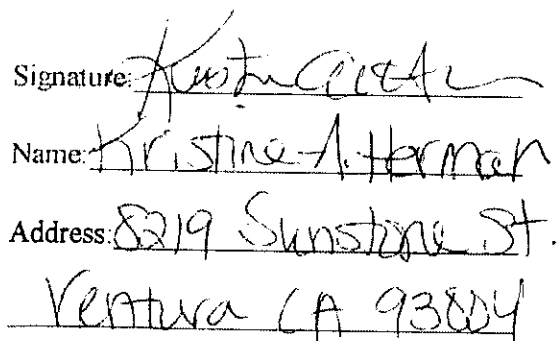 Signature:
Name: Kristine A. Herman
Address: 8219 Sunstone St.
Ventura CA 93004